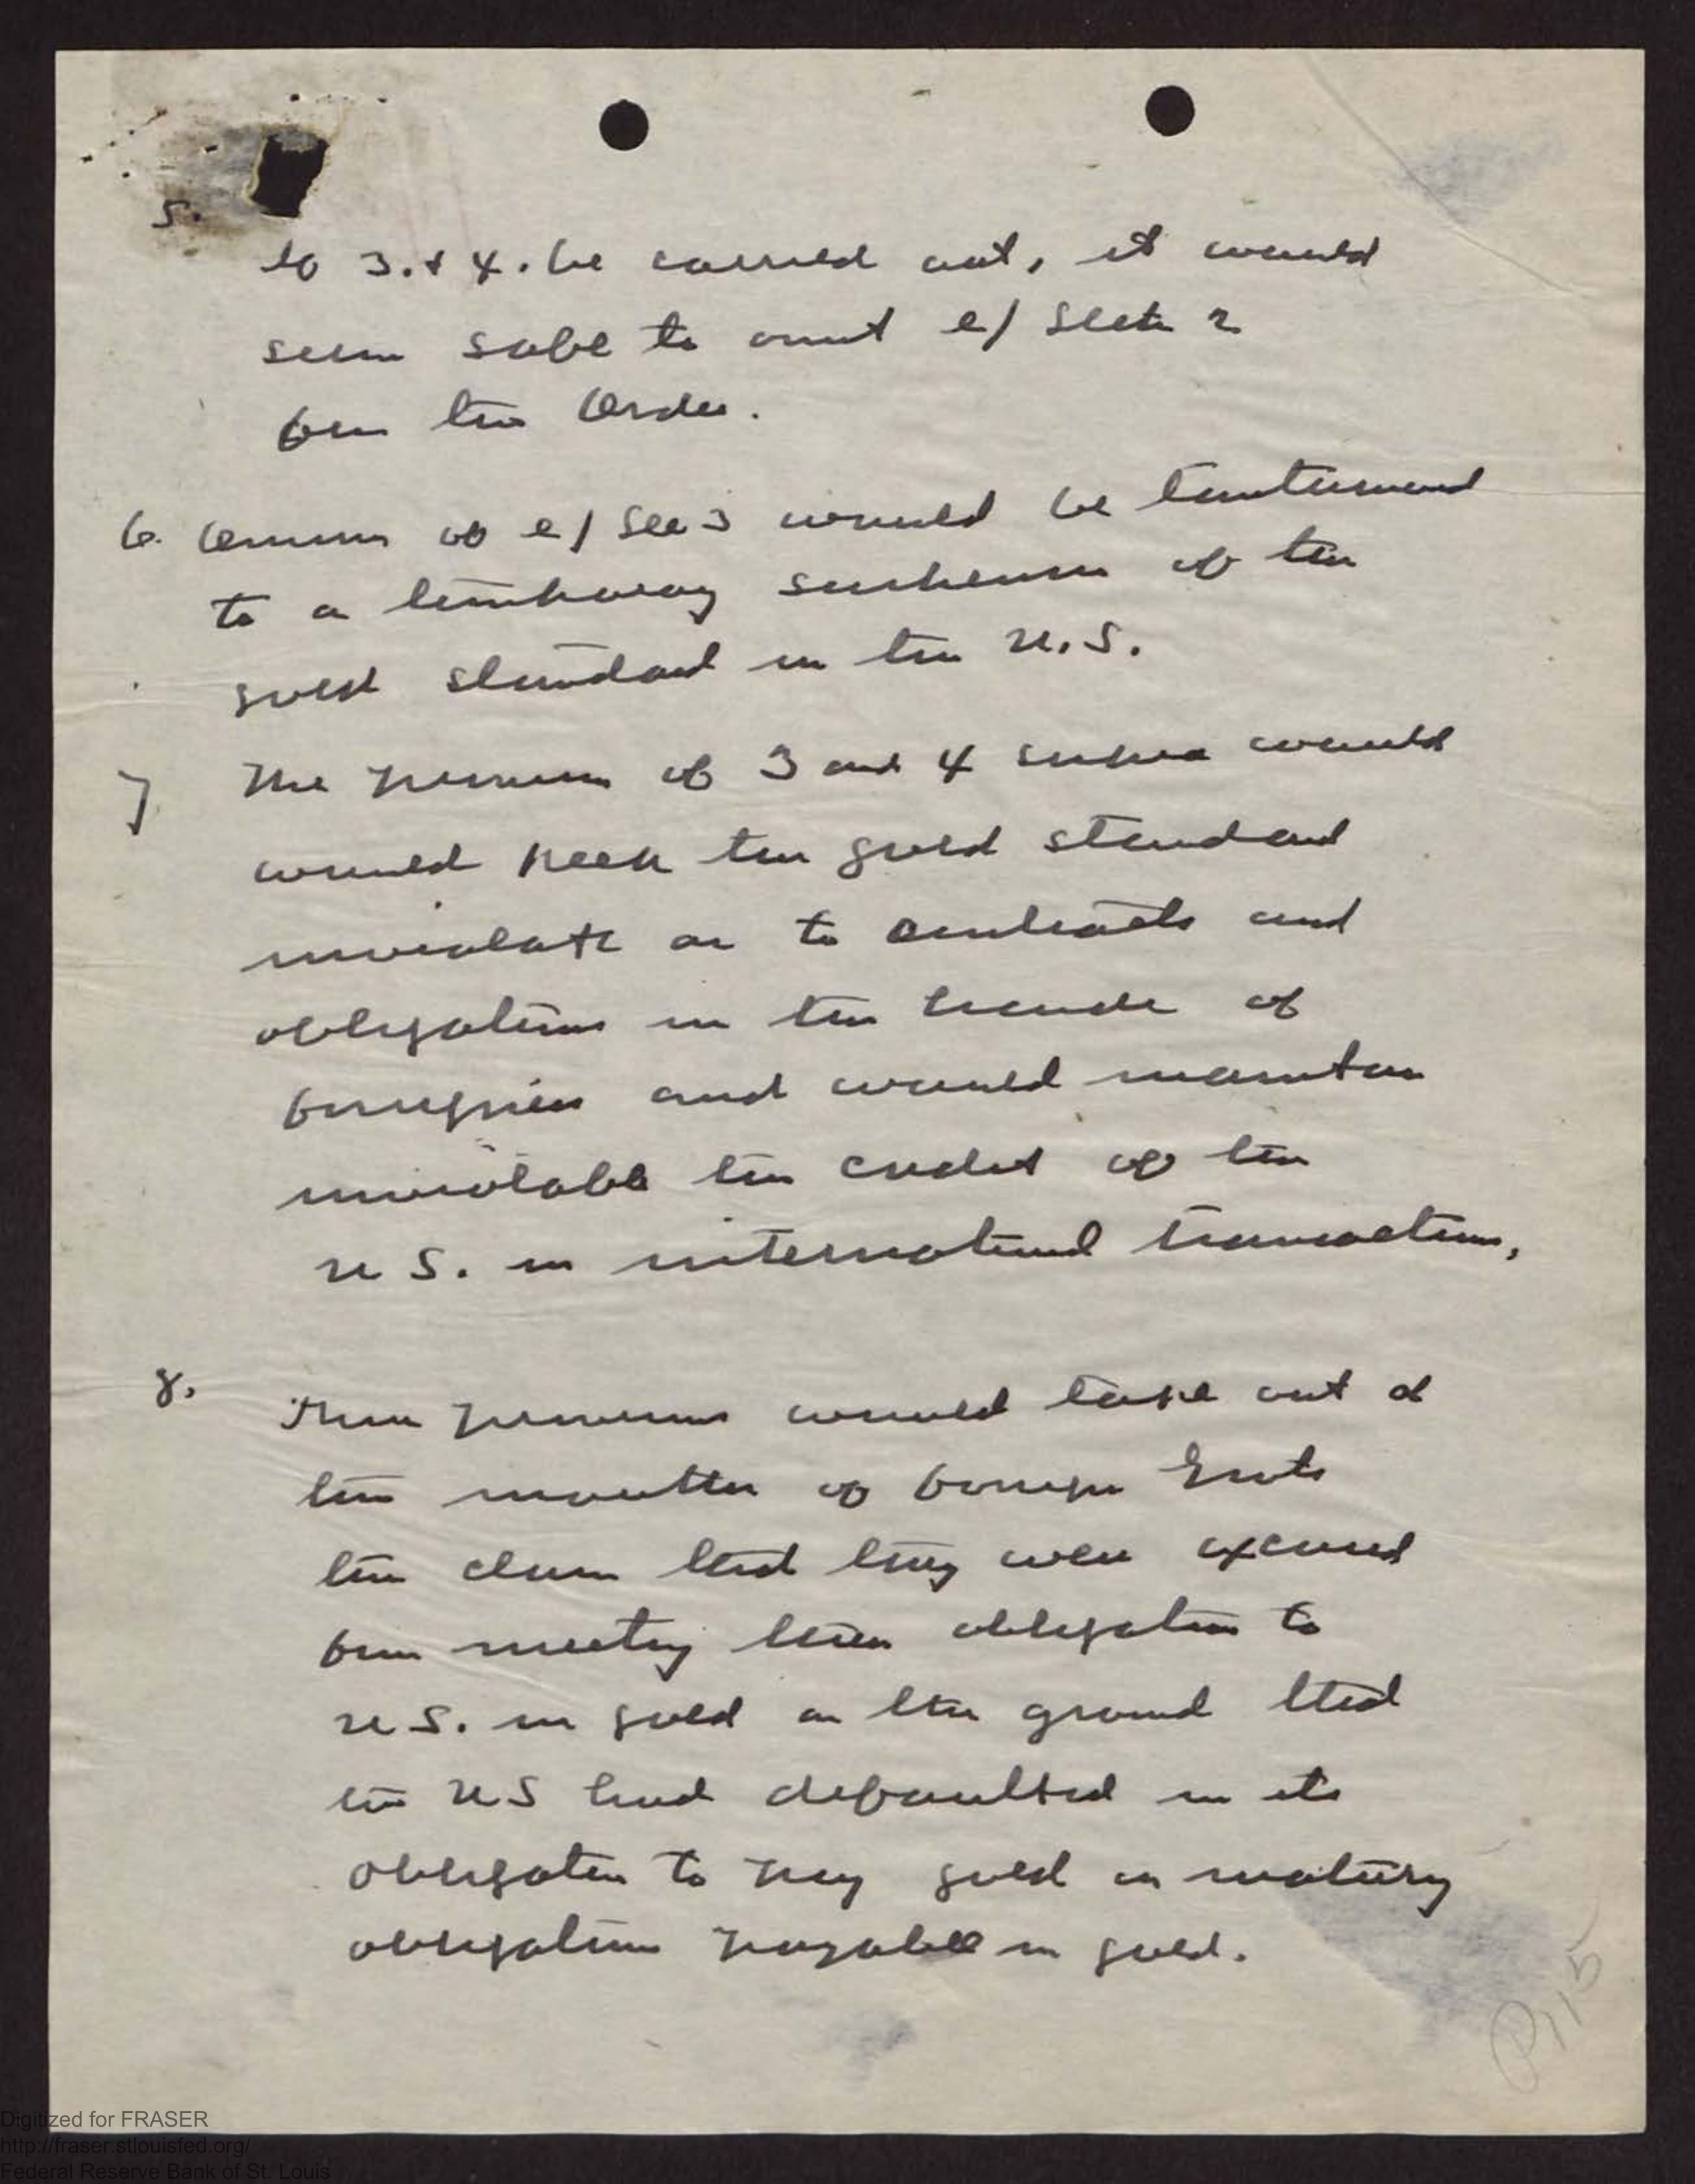 5.
to 3. & 4. be carried out, it would
seem safe to omit e/ Sectn 2
from the Order.
6. Omission of e/ Sec 3 would be tantamount
to a temporary suspension of the
gold standard in the U.S.
7 The provision of 3 and 4 supra would
would keep the gold standard
inviolate as to contracts and
obligations in the hands of
foreigners and would maintain
inviolable the credit of the
U S. in international transactions.
8. These provisions would take out of
the mouths of foreign Govts
the claim that they were excused
from meeting their obligation to
U S. in gold on the ground that
the US had defaulted in its
obligation to pay gold on maturing
obligations payable in gold.
P115
Digitized for FRASER
http://fraser.stlouisfed.org/
Federal Reserve Bank of St. Louis